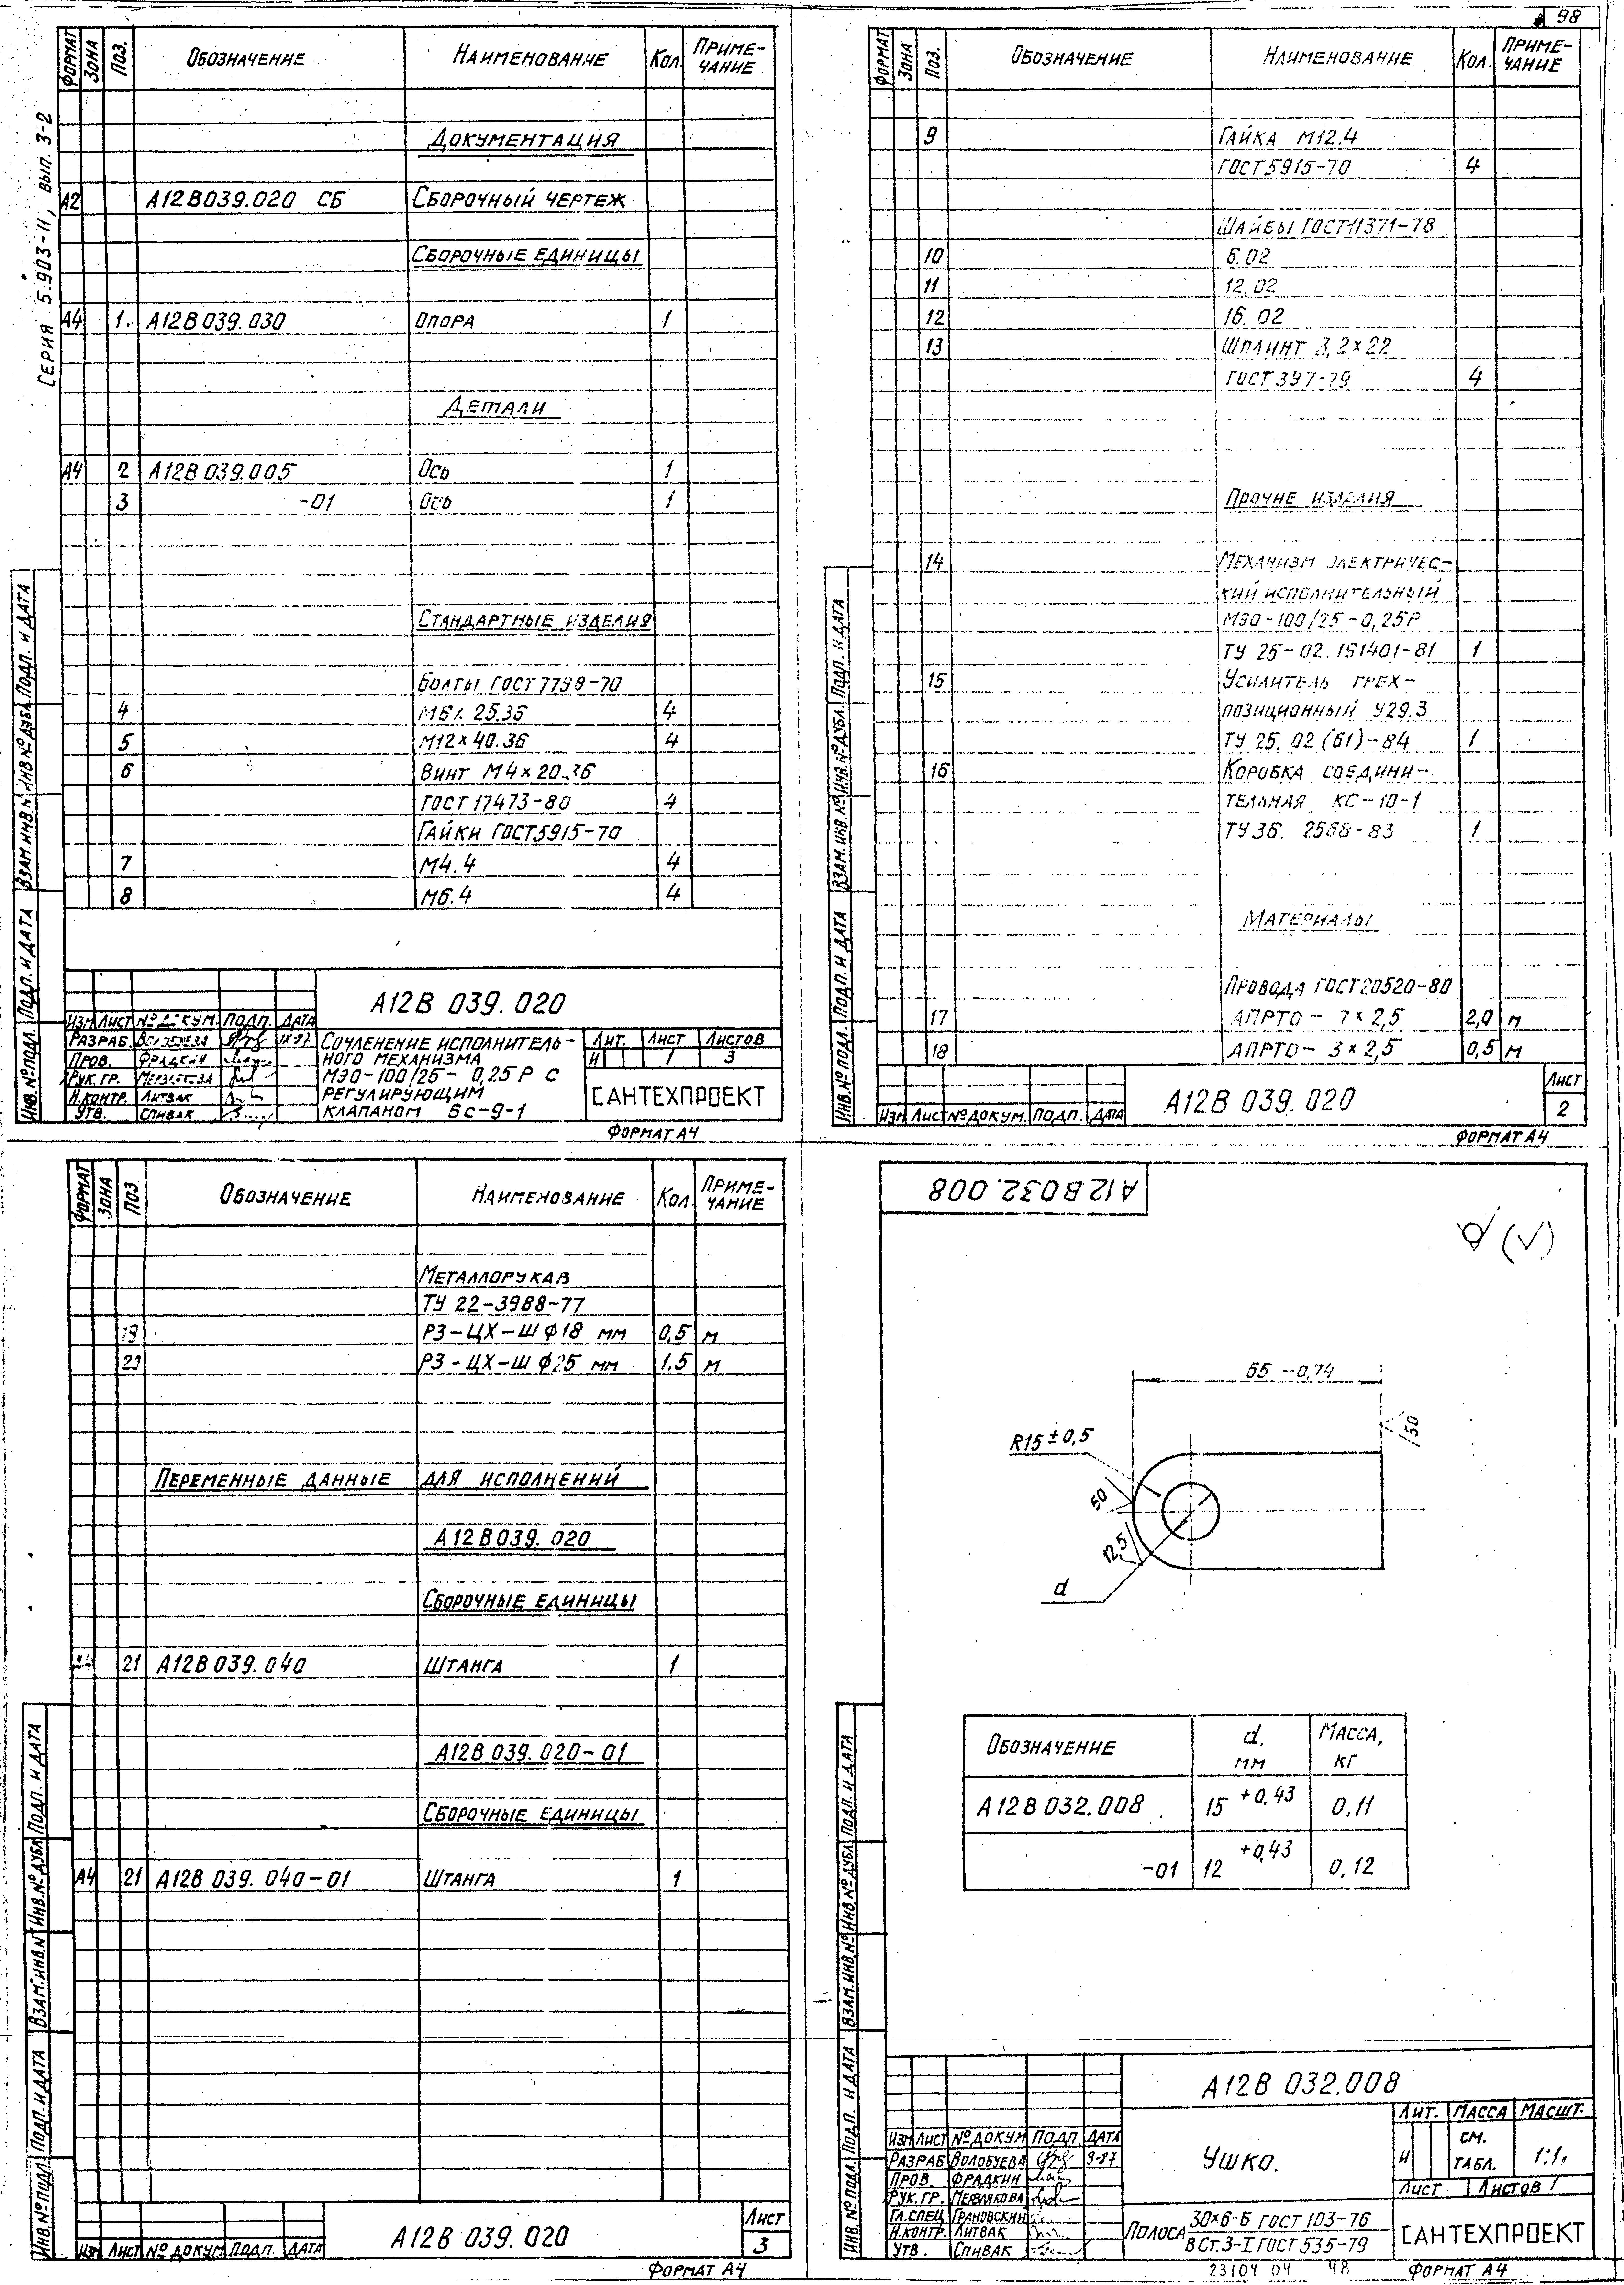 98
Серия 5.903-11, вып. 3-2
Формат Зона Поз. Обозначение Наименование Кол. Примечание
Документация
А2 А12В039.020 СБ Сборочный чертеж
Сборочные единицы
А4 1. А12В039.030 Опора 1
Детали
А4 2 А12В039.005 Ось 1
3 -01 Ось 1
Стандартные изделия
Болты ГОСТ 7798-70
4 М6×25.36 4
5 М12×40.36 4
6 Винт М4×20.36
ГОСТ 17473-80 4
Гайки ГОСТ 5915-70
7 М4.4 4
8 М6.4 4
А12В 039.020
Изм Лист № докум. Подп. Дата
Разраб. Волобуева
Пров. Фрадкин
Рук. гр. Мерзлякова
Н.контр. Литвак
Утв. Спивак
Сочленение исполнитель-
ного механизма
МЭО-100/25-0,25Р с
регулирующим
клапаном 6с-9-1
Лит. Лист Листов
И 1 3
САНТЕХПРОЕКТ
Формат А4
Инв.№ подл. Подп. и дата Взам.инв.№ Инв.№ дубл. Подп. и дата
Формат Зона Поз. Обозначение Наименование Кол. Примечание
9 Гайка М12.4
ГОСТ 5915-70 4
Шайбы ГОСТ 11371-78
10 6.02
11 12.02
12 16.02
13 Шплинт 3,2×22
ГОСТ 397-79 4
Прочие изделия
14 Механизм электричес-
кий исполнительный
МЭО-100/25-0,25Р
ТУ 25-02.191401-81 1
15 Усилитель трех-
позиционный У29.3
ТУ 25.02 (61)-84 1
16 Коробка соедини-
тельная КС-10-1
ТУ36. 2568-83 1
Материалы
Провода ГОСТ 20520-80
17 АПРТО-7×2,5 2,0 м
18 АПРТО-3×2,5 0,5 м
Изм Лист № докум. Подп. Дата
А12В 039.020
Лист
2
Формат А4
Инв.№ подл. Подп. и дата Взам.инв.№ Инв.№ дубл. Подп. и дата
Формат Зона Поз Обозначение Наименование Кол. Примечание
Металлорукав
ТУ 22-3988-77
19 РЗ-ЦХ-Ш ϕ18 мм 0,5 м
20 РЗ-ЦХ-Ш ϕ25 мм 1.5 м
Переменные данные для исполнений
А12В039.020
Сборочные единицы
21 А12В039.040 Штанга 1
А12В 039.020-01
Сборочные единицы
А4 21 А12В 039.040-01 Штанга 1
Изм Лист № докум Подп. Дата
А12В 039.020
Лист
3
Формат А4
Инв.№ подл. Подп. и дата Взам.инв.№ Инв.№ дубл. Подп. и дата
А12В032.008
65 -0,74
50
R15±0,5
50
12,5
d
Обозначение d, мм Масса, кг
А12В032.008 15 +0,43 0,11
-01 12 +0,43 0,12
А12В 032.008
Изм Лист № докум Подп. Дата
Разраб Волобуева 9-87
Пров. Фрадкин
Рук. гр. Мерзлякова
Гл.спец Грановский
Н.контр. Литвак
Утв. Спивак
Ушко.
Лит. Масса Масшт.
И см. табл. 1:1.
Лист Листов 1
Полоса 30×6-Б ГОСТ 103-76
В Ст.3-I ГОСТ 535-79
САНТЕХПРОЕКТ
23104 04 98
Формат А4
Инв.№ подл. Подп. и дата Взам.инв.№ Инв.№ дубл. Подп. и дата